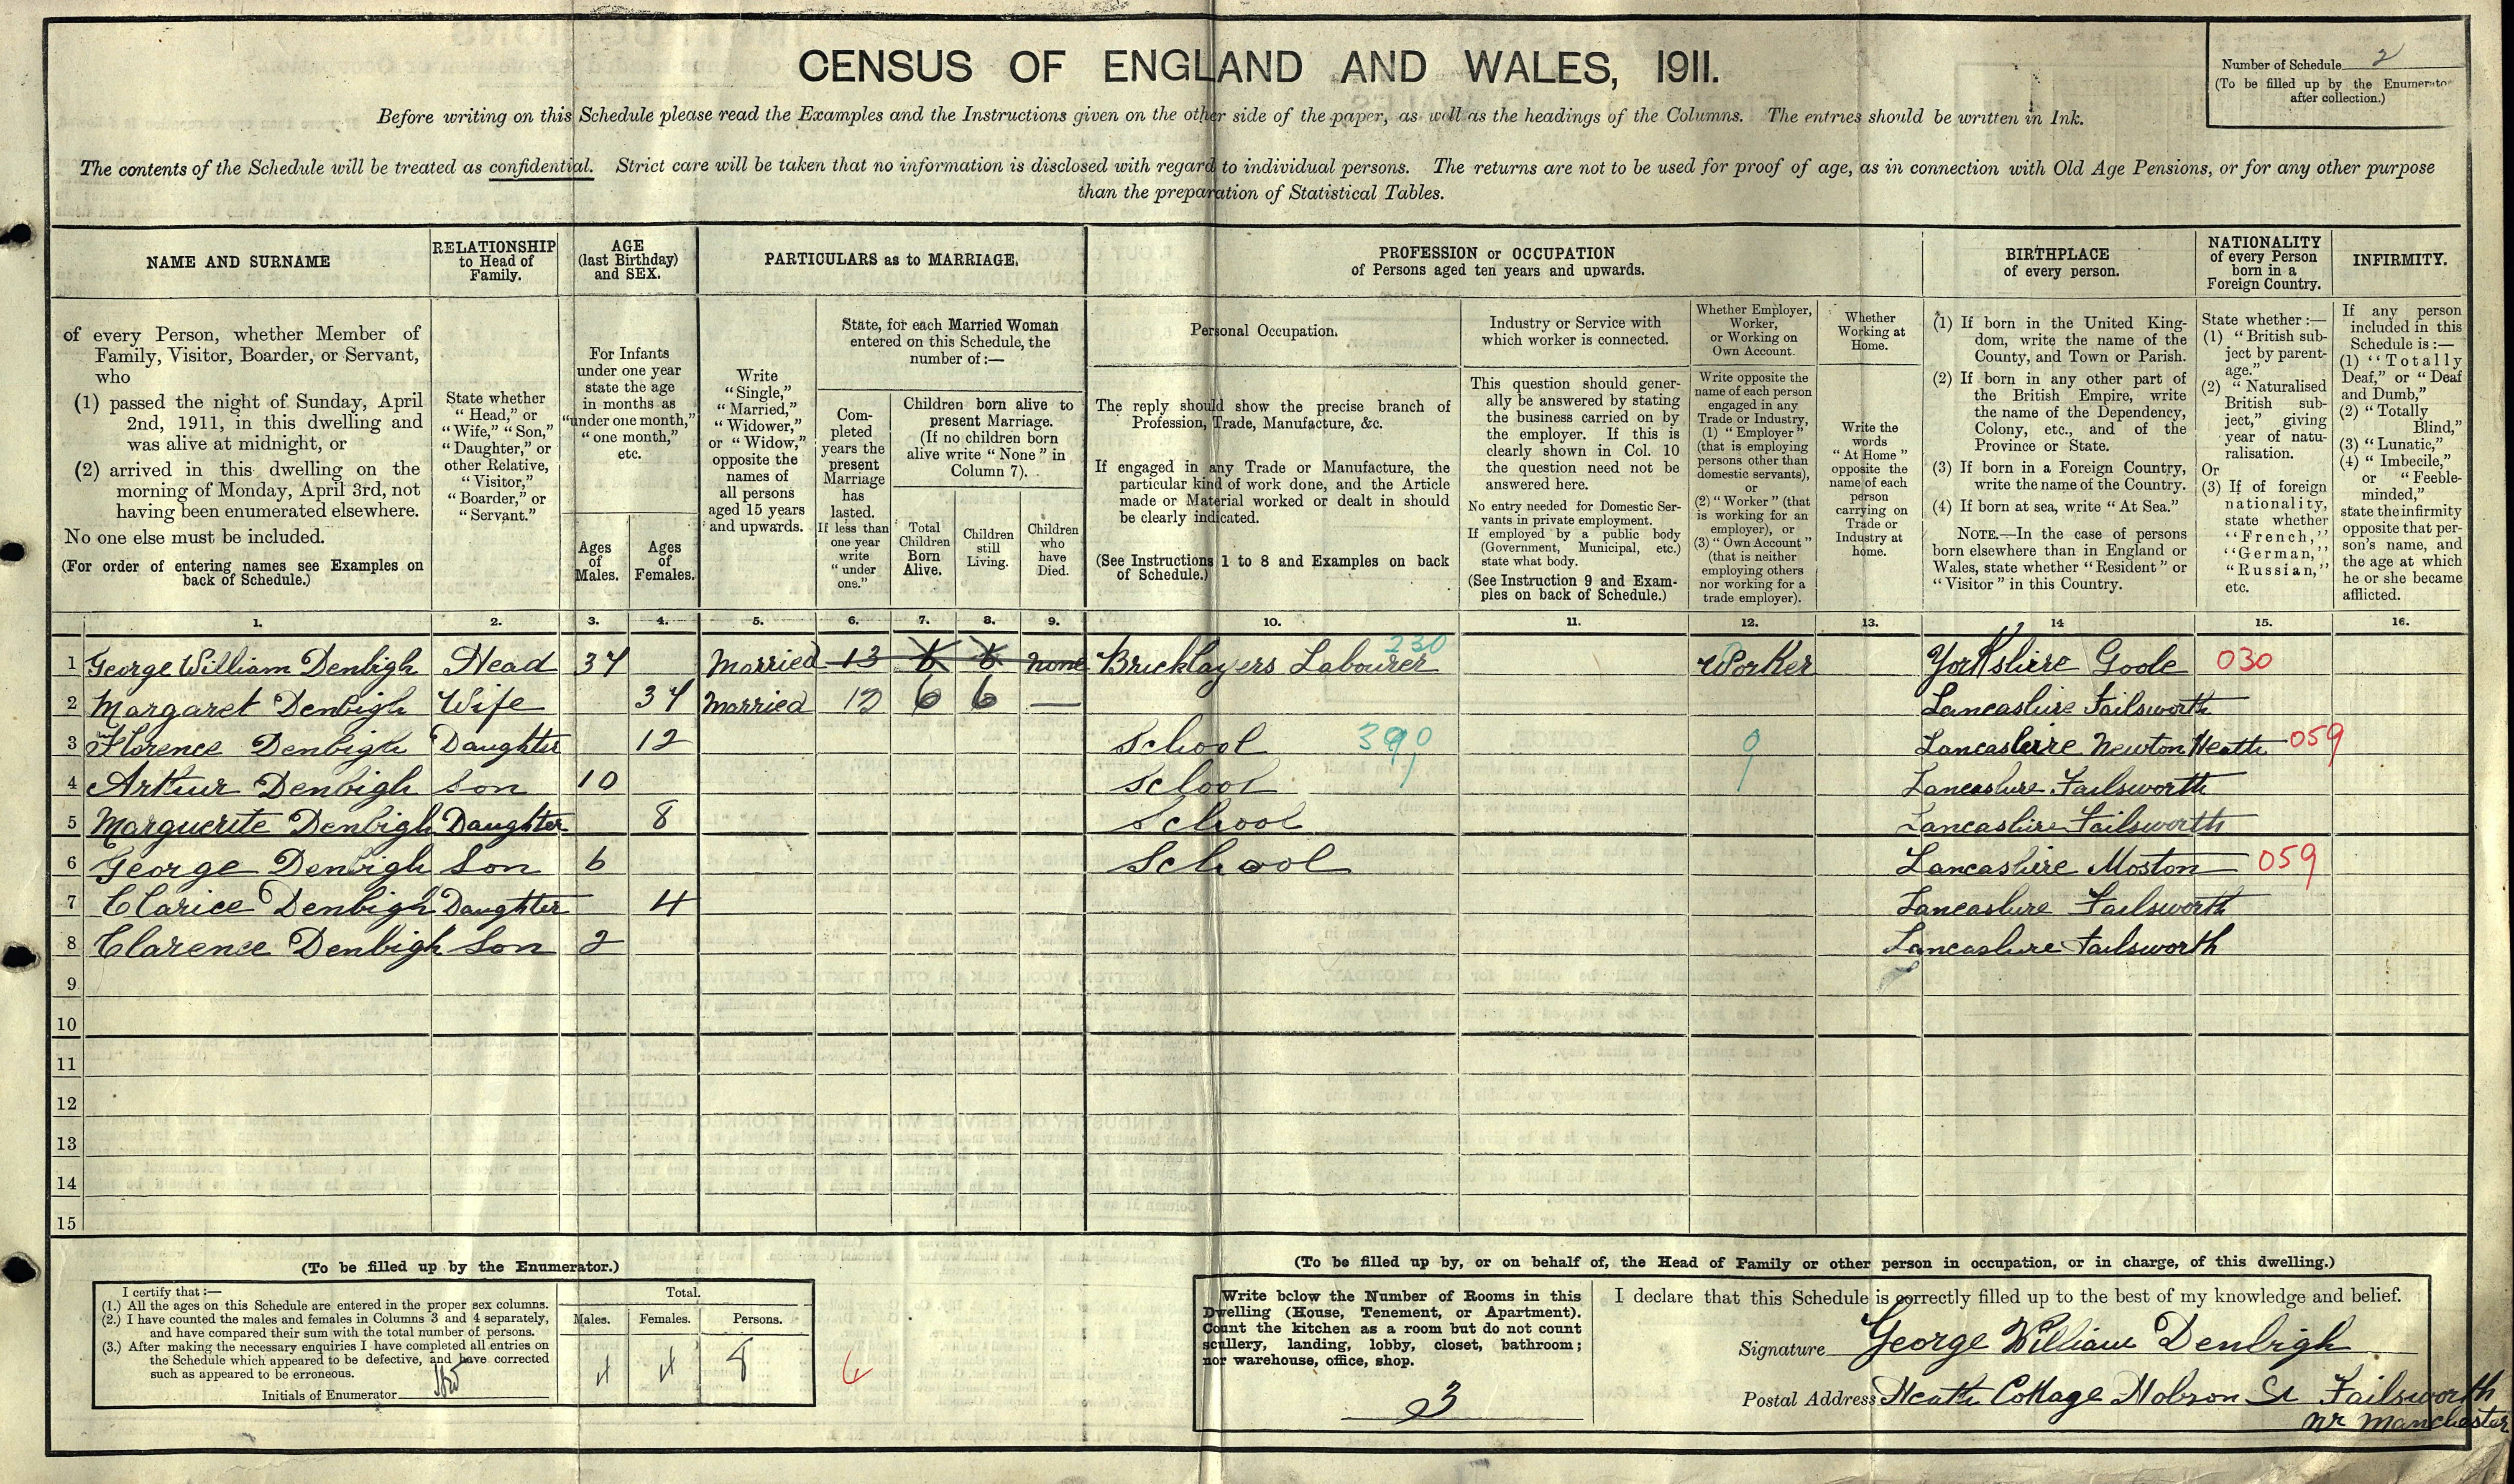 CENSUS OF ENGLAND AND WALES, 1911.
Number of Schedule 2
(To be filled up by the Enumerator
after collection.)
Before writing on this Schedule please read the Examples and the Instructions given on the other side of the paper, as well as the headings of the Columns. The entries should be written in Ink.
The contents of the Schedule will be treated as confidential. Strict care will be taken that no information is disclosed with regard to individual persons. The returns are not to be used for proof of age, as in connection with Old Age Pensions, or for any other purpose
than the preparation of Statistical Tables.
NAME AND SURNAME
of every Person, whether Member of
Family, Visitor, Boarder, or Servant,
who
(1) passed the night of Sunday, April
2nd, 1911, in this dwelling and
was alive at midnight, or
(2) arrived in this dwelling on the
morning of Monday, April 3rd, not
having been enumerated elsewhere.
No one else must be included.
(For order of entering names see Examples on
back of Schedule.)
RELATIONSHIP
to Head of
Family.
State whether
"Head," or
"Wife," "Son,"
"Daughter," or
other Relative,
"Visitor,"
"Boarder," or
"Servant."
AGE
(last Birthday)
and SEX.
For Infants
under one year
state the age
in months as
"under one month,"
"one month,"
etc.
Ages
of
Males.
Ages
of
Females.
PARTICULARS as to MARRIAGE.
Write
"Single,"
"Married,"
"Widower,"
or "Widow,"
opposite the
names of
all persons
aged 15 years
and upwards.
State, for each Married Woman
entered on this Schedule, the
number of:—
Com-
pleted
years the
present
Marriage
has
lasted.
If less than
one year
write
"under
one."
Children born alive to
present Marriage.
(If no children born
alive write "None" in
Column 7).
Total
Children
Born
Alive.
Children
still
Living.
Children
who
have
Died.
PROFESSION or OCCUPATION
of Persons aged ten years and upwards.
Personal Occupation.
The reply should show the precise branch of
Profession, Trade, Manufacture, &c.
If engaged in any Trade or Manufacture, the
particular kind of work done, and the Article
made or Material worked or dealt in should
be clearly indicated.
(See Instructions 1 to 8 and Examples on back
of Schedule.)
Industry or Service with
which worker is connected.
This question should gener-
ally be answered by stating
the business carried on by
the employer. If this is
clearly shown in Col. 10
the question need not be
answered here.
No entry needed for Domestic Ser-
vants in private employment.
If employed by a public body
(Government, Municipal, etc.)
state what body.
(See Instruction 9 and Exam-
ples on back of Schedule.)
Whether Employer,
Worker,
or Working on
Own Account.
Write opposite the
name of each person
engaged in any
Trade or Industry,
(1) "Employer"
(that is employing
persons other than
domestic servants),
or
(2) "Worker" (that
is working for an
employer), or
(3) "Own Account"
(that is neither
employing others
nor working for a
trade employer).
Whether
Working at
Home.
Write the
words
"At Home"
opposite the
name of each
person
carrying on
Trade or
Industry at
home.
BIRTHPLACE
of every person.
(1) If born in the United King-
dom, write the name of the
County, and Town or Parish.
(2) If born in any other part of
the British Empire, write
the name of the Dependency,
Colony, etc., and of the
Province or State.
(3) If born in a Foreign Country,
write the name of the Country.
(4) If born at sea, write "At Sea."
NOTE.—In the case of persons
born elsewhere than in England or
Wales, state whether "Resident" or
"Visitor" in this Country.
NATIONALITY
of every Person
born in a
Foreign Country.
State whether :—
(1) "British sub-
ject by parent-
age."
(2) "Naturalised
British sub-
ject," giving
year of natu-
ralisation.
Or
(3) If of foreign
nationality,
state whether
"French,"
"German,"
"Russian,"
etc.
INFIRMITY.
If any person
included in this
Schedule is :—
(1) "Totally
Deaf," or "Deaf
and Dumb,"
(2) "Totally
Blind,"
(3) "Lunatic,"
(4) "Imbecile,"
or "Feeble-
minded,"
state the infirmity
opposite that per-
son's name, and
the age at which
he or she became
afflicted.
1. 2. 3. 4. 5. 6. 7. 8. 9. 10. 11. 12. 13. 14 15. 16.
1 George William Denbigh Head 37 Married 13 6 6 none Bricklayers Labourer 230 Worker Yorkshire Goole 030
2 Margaret Denbigh Wife 37 Married 12 6 6 — Lancashire Failsworth
3 Florence Denbigh Daughter 12 School 390 9 Lancashire Newton Heath 059
4 Arthur Denbigh Son 10 School Lancashire Failsworth
5 Marguerite Denbigh Daughter 8 School Lancashire Failsworth
6 George Denbigh Son 6 School Lancashire Moston 059
7 Clarice Denbigh Daughter 4 Lancashire Failsworth
8 Clarence Denbigh Son 2 Lancashire Failsworth
9
10
11
12
13
14
15
(To be filled up by the Enumerator.)
I certify that :—
(1.) All the ages on this Schedule are entered in the proper sex columns.
(2.) I have counted the males and females in Columns 3 and 4 separately,
and have compared their sum with the total number of persons.
(3.) After making the necessary enquiries I have completed all entries on
the Schedule which appeared to be defective, and have corrected
such as appeared to be erroneous.
Initials of Enumerator
Total.
Males. Females. Persons.
4 4 8
6
(To be filled up by, or on behalf of, the Head of Family or other person in occupation, or in charge, of this dwelling.)
Write below the Number of Rooms in this
Dwelling (House, Tenement, or Apartment).
Count the kitchen as a room but do not count
scullery, landing, lobby, closet, bathroom;
nor warehouse, office, shop.
3
I declare that this Schedule is correctly filled up to the best of my knowledge and belief.
Signature George William Denbigh
Postal Address Heath Cottage Hobson St Failsworth
nr Manchester